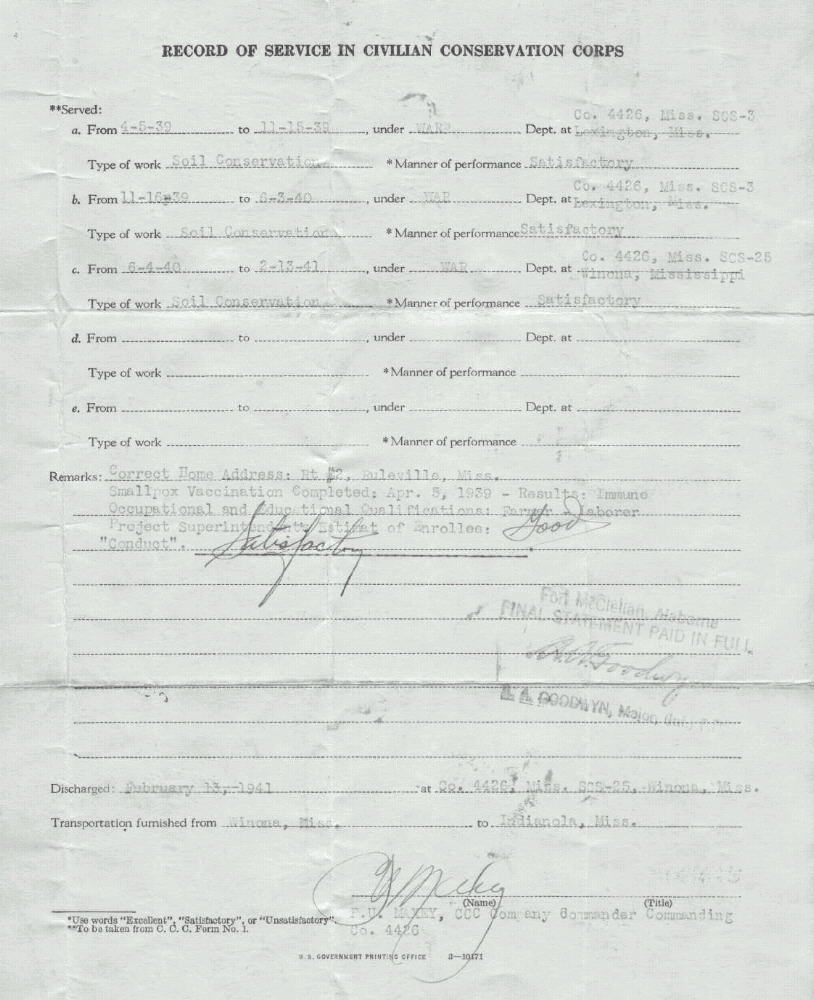 RECORD OF SERVICE IN CIVILIAN CONSERVATION CORPS
**Served:
Co. 4426, Miss. SCS-3
a. From 4-5-39 to 11-15-39, under WAR Dept. at Lexington, Miss.
Type of work Soil Conservation *Manner of performance Satisfactory
Co. 4426, Miss. SCS-3
b. From 11-16-39 to 6-3-40, under WAR Dept. at Lexington, Miss.
Type of work Soil Conservation *Manner of performance Satisfactory
Co. 4426, Miss. SCS-25
c. From 6-4-40 to 2-13-41, under WAR Dept. at Winona, Mississippi
Type of work Soil Conservation *Manner of performance Satisfactory
d. From to , under Dept. at
Type of work *Manner of performance
e. From to , under Dept. at
Type of work *Manner of performance
Remarks: Correct Home Address: Rt #2, Ruleville, Miss.
Smallpox Vaccination Completed: Apr. 5, 1939 - Results: Immune
Occupational and Educational Qualifications: Farmer Laborer
Project Superintendents Estimat of Enrollee: Good
"Conduct". Satisfactory.
Fort McClellan, Alabama
FINAL STATEMENT PAID IN FULL
Goodwyn
GOODWYN, Major
Discharged: February 13, 1941 at Co. 4426, Miss. SCS-25, Winona, Miss.
Transportation furnished from Winona, Miss. to Indianola, Miss.
(Name) (Title)
MAXEY, CCC Company Commander Commanding
Co. 4426
*Use words "Excellent", "Satisfactory", or "Unsatisfactory".
**To be taken from C. C. C. Form No. 1.
U. S. GOVERNMENT PRINTING OFFICE 3—10171